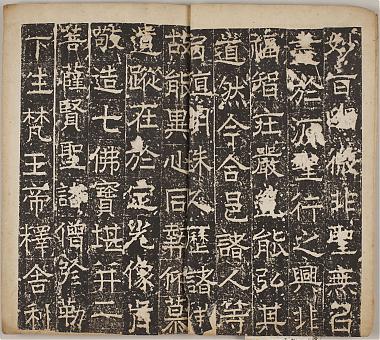 妙百幽微非聖無
盡於源聖行之興非
福智莊嚴豈能弘其
道然今合邑諸人等
殖明珠久歷諸
故能異心同契仰慕
遺蹤在於定光像背
敬造七佛寶堪并二
菩薩賢聖諸僧弥勒
下生梵王帝釋舍利